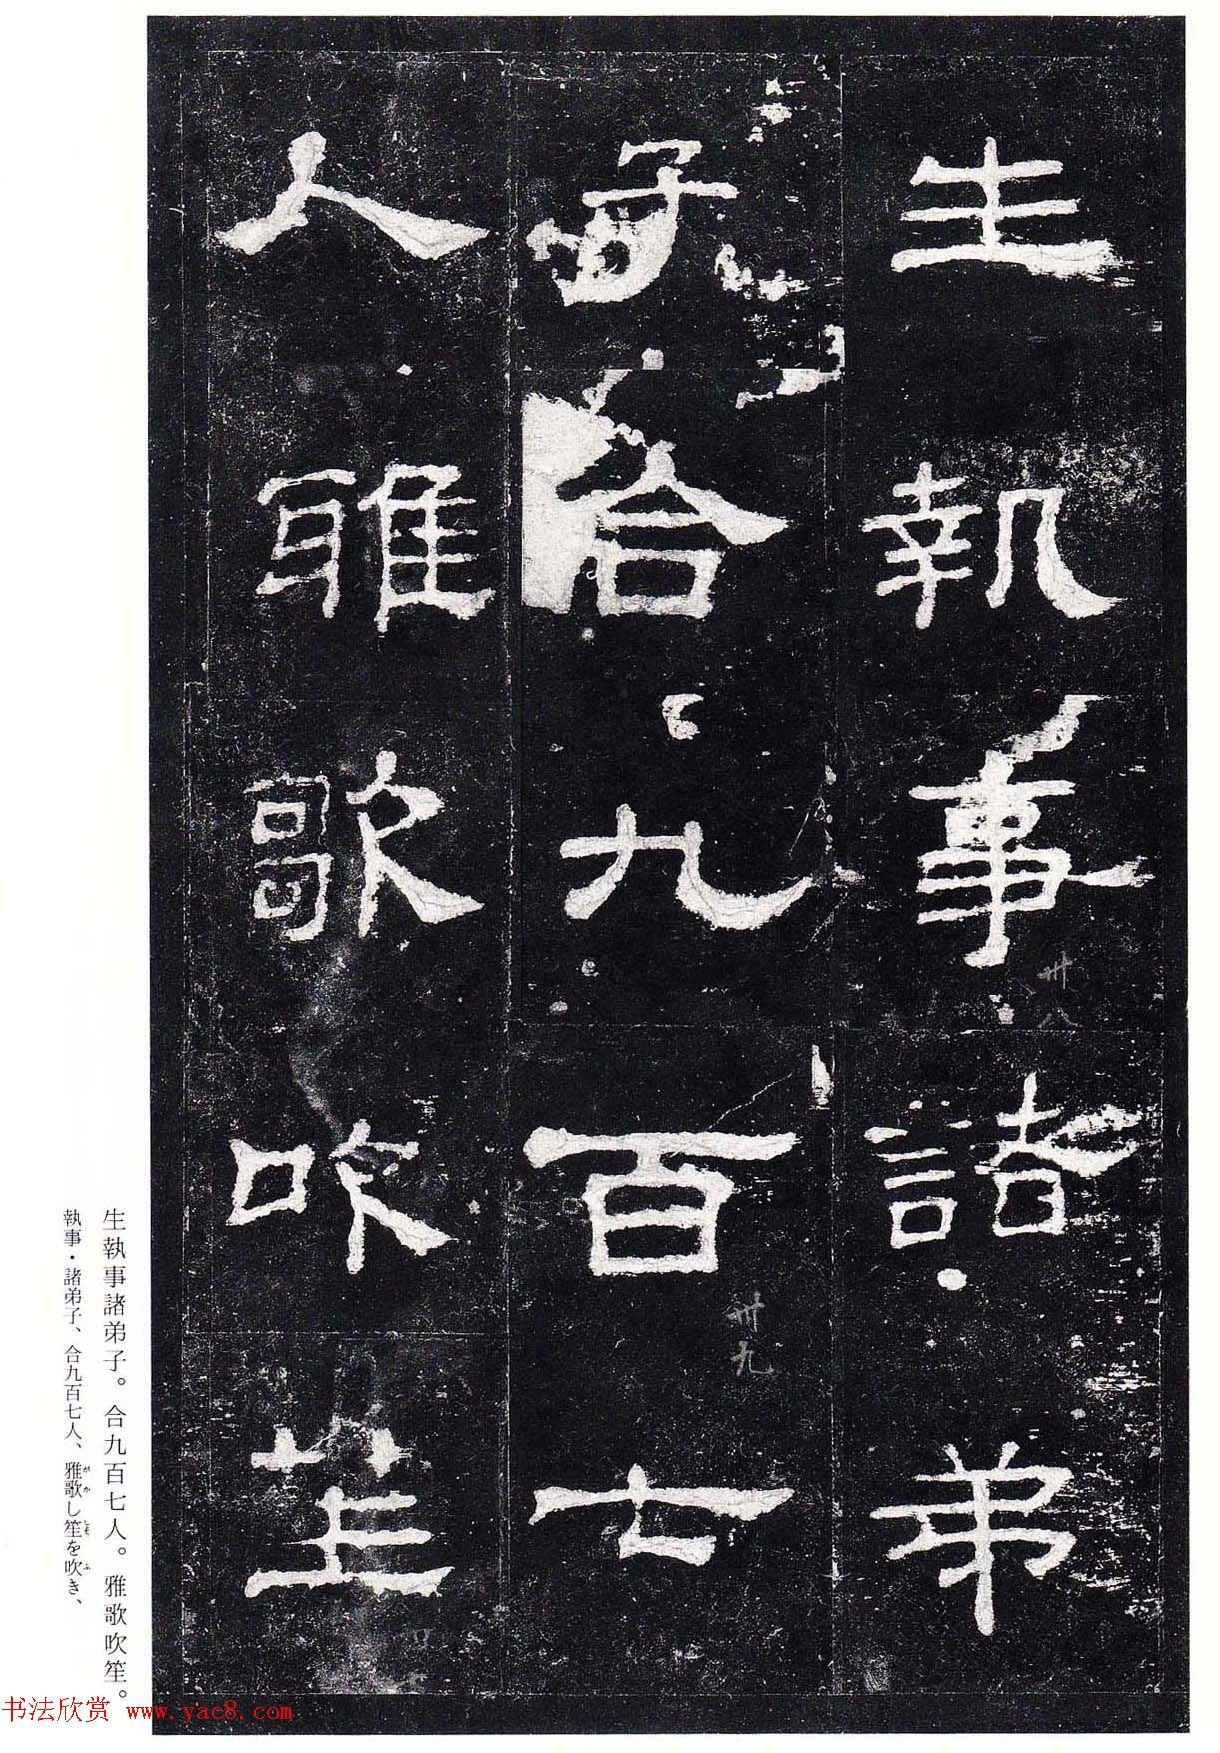 生執事諸弟
子合九百七
人雅歌吹笙
卅八
卅九
生執事諸弟子。合九百七人。雅歌吹笙。
執事・諸弟子、合九百七人、雅歌し笙を吹き、
がか しょう ふ
书法欣赏 www.yac8.com